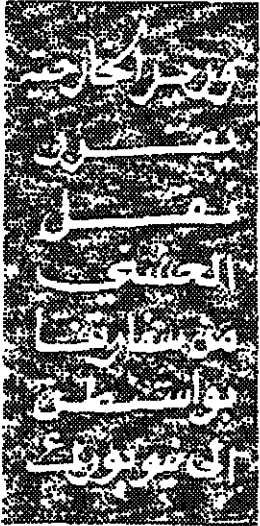 وزير الخارجية
يقرر
نقل
العشني
من سفارتنا
بواشنطن
الى نيويورك